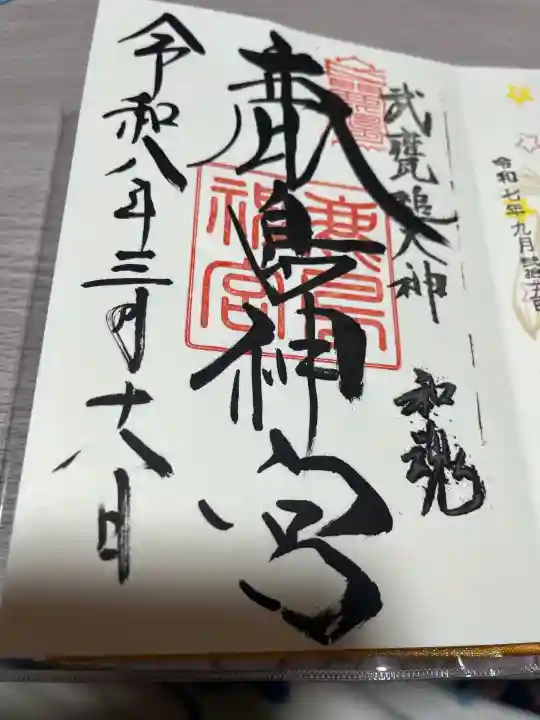 令和七年九月
武甕槌大神
和魂
鹿島神宮
鹿島神宮
令和八年三月十八日